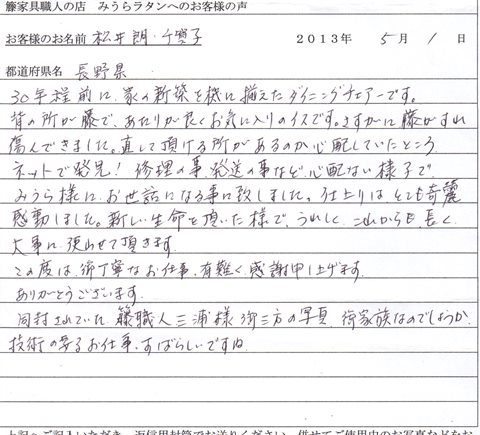 籐家具職人の店 みうらラタンへのお客様の声
お客様のお名前 松井 朗・千寶子 2013年 5月 1日
都道府県名 長野県
30年程前に、家の新築を機に揃えたダイニングチェアーです。
背の所が藤で、あたりが良くお気に入りのイスです。さすがに藤がすれ
傷んできました。直して頂ける所があるのか心配していたところ
ネットで発見! 修理の事、発送の事など、心配ない様子で
みうら様に、お世話になる事に致しました。仕上りは、とても奇麗
感動しました。新しい生命を頂いた様で、うれしく、これからも長く、
大事に使わせて頂きます。
この度は、御丁寧なお仕事、有難く感謝申し上げます。
ありがとうございます。
同封されていた、籐職人三浦様御三方の写真、御家族なのでしょうか。
技術の要るお仕事、すばらしいですね。